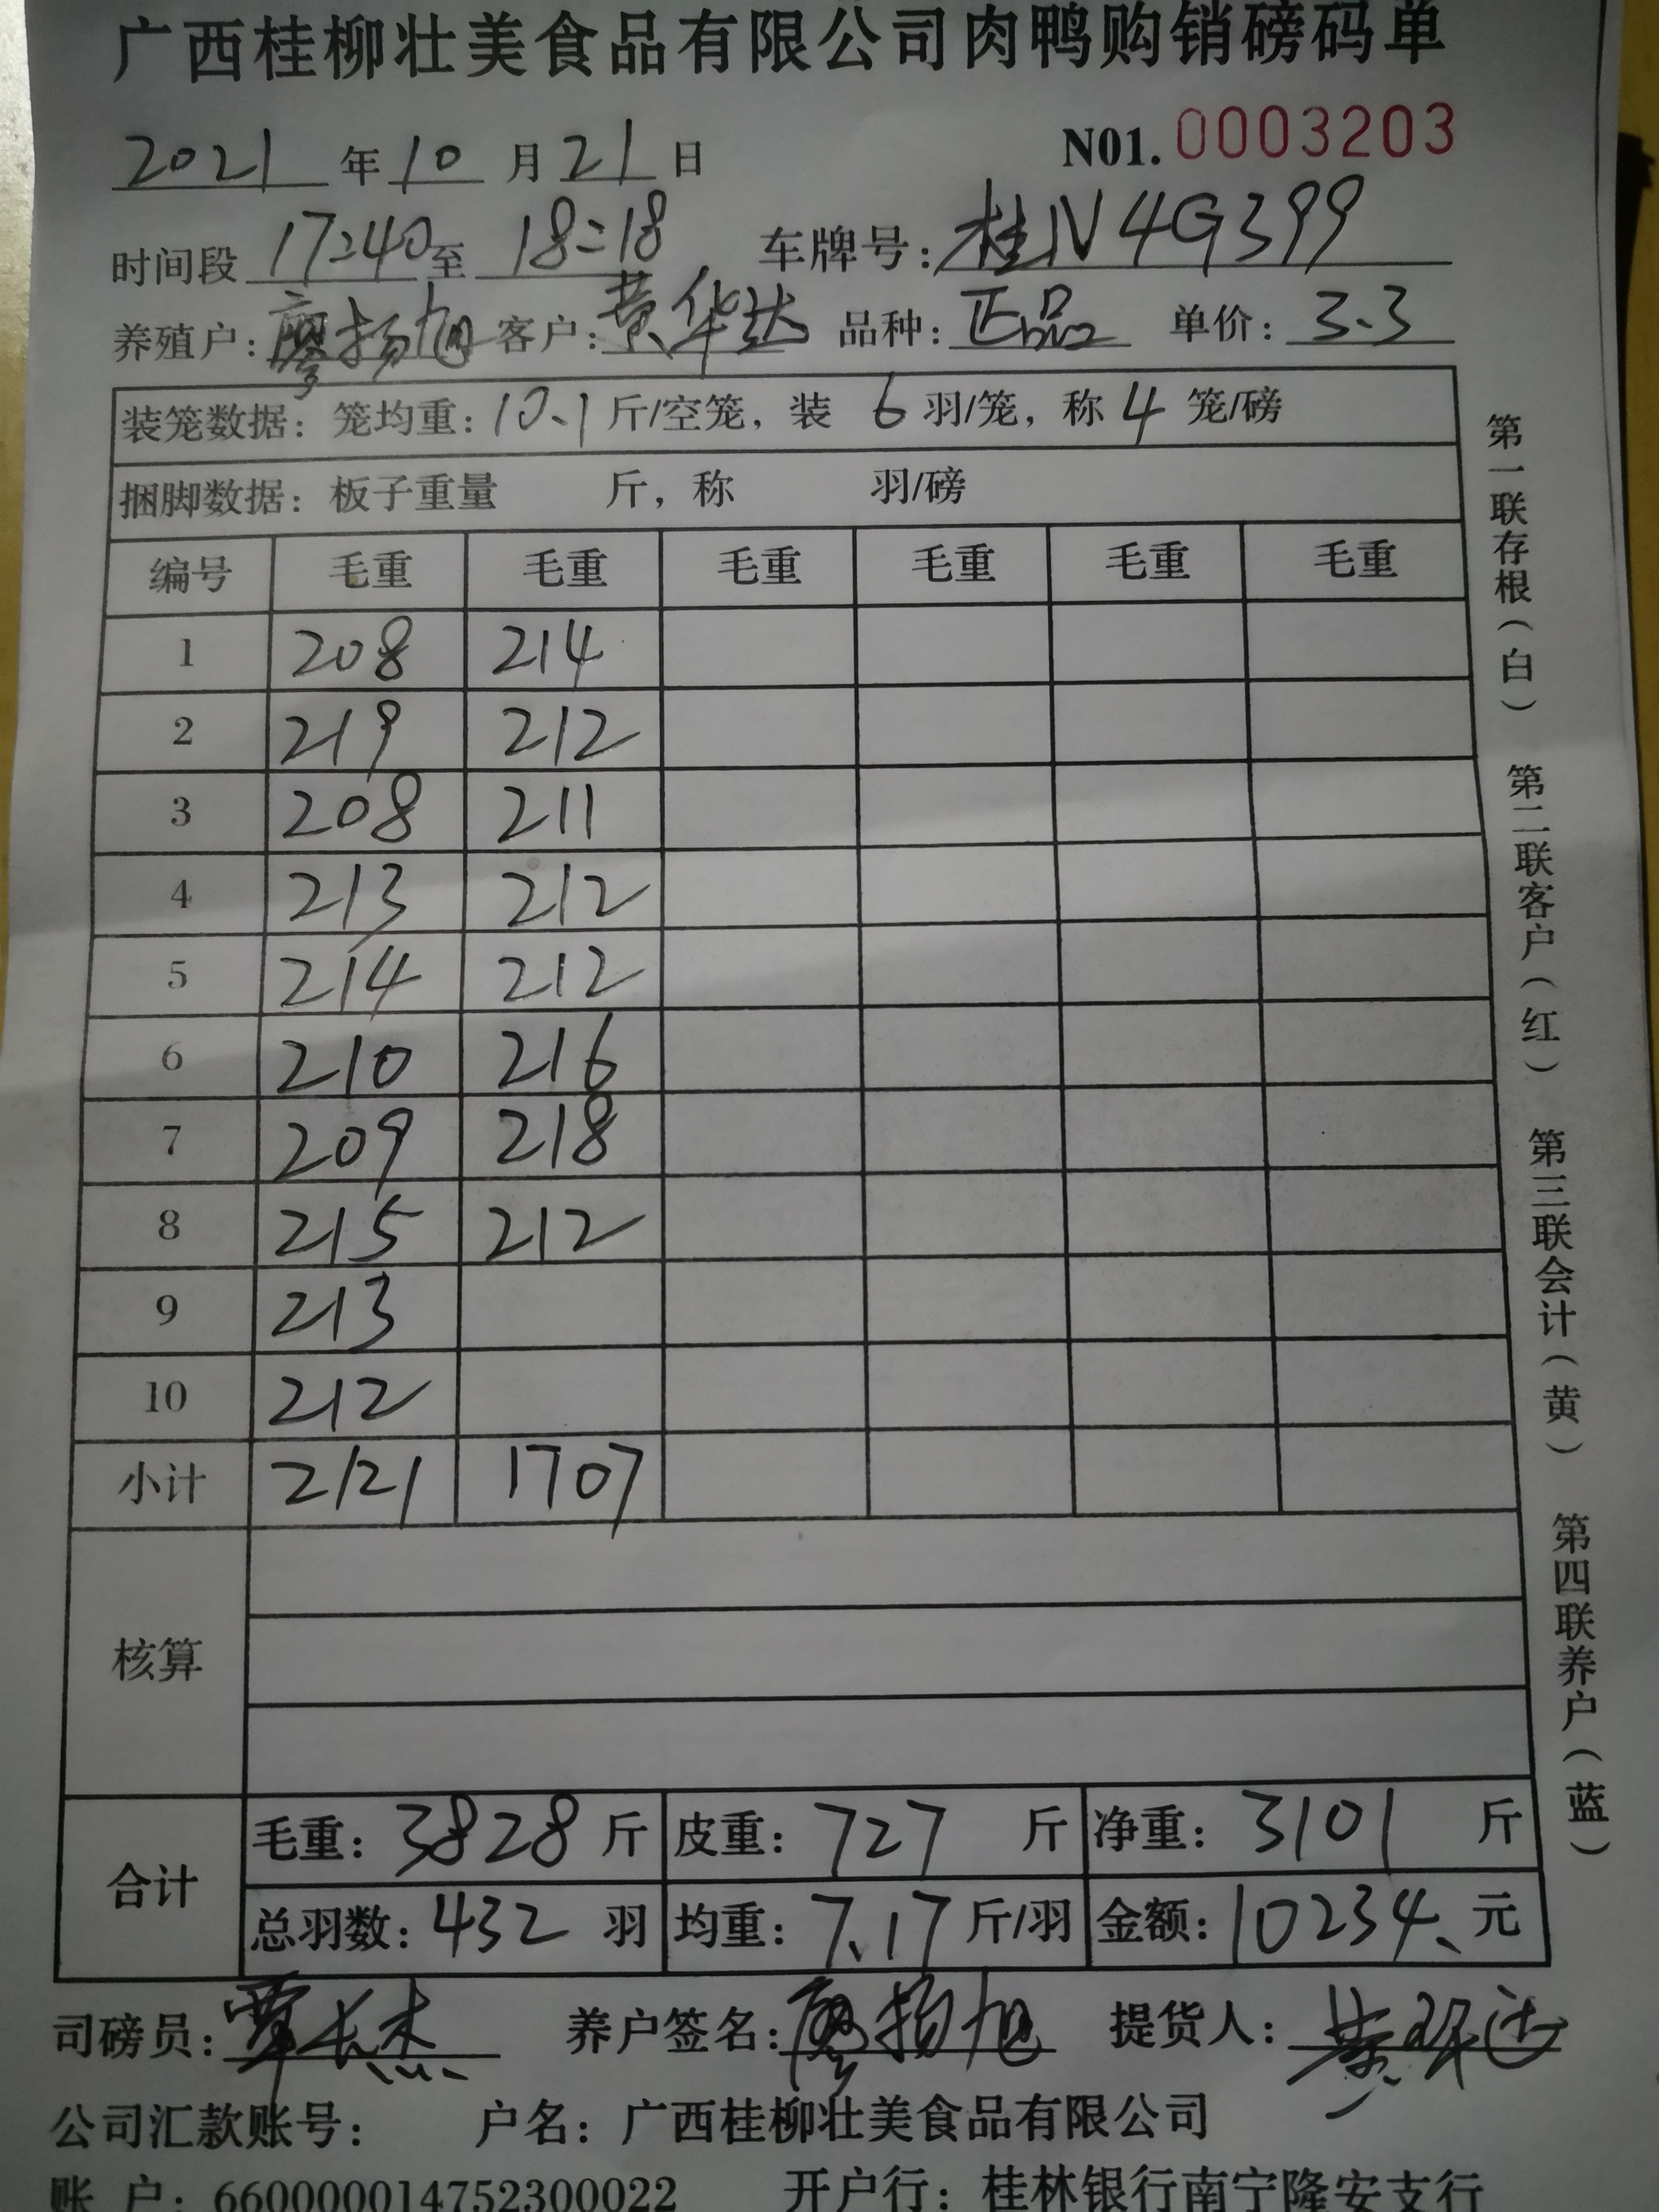 广西桂柳壮美食品有限公司肉鸭购销磅码单
2021 年 10 月 21 日 N01. 0003203
时间段 17:40 至 18:18 车牌号: 桂N4G399
养殖户: 廖扬旭 客户: 黄华达 品种: 正品 单价: 3.3
装笼数据: 笼均重: 10.1 斤/空笼, 装 6 羽/笼, 称 4 笼/磅
捆脚数据: 板子重量 斤, 称 羽/磅
编号 毛重 毛重 毛重 毛重 毛重 毛重
1 208 214
2 219 212
3 208 211
4 213 212
5 214 212
6 210 216
7 209 218
8 215 212
9 213
10 212
小计 2121 1707
核算
合计 毛重: 3828 斤 皮重: 727 斤 净重: 3101 斤
总羽数: 432 羽 均重: 7.17 斤/羽 金额: 10234. 元
司磅员: 覃长杰 养户签名: 廖扬旭 提货人: 黄华达
公司汇款账号: 户名: 广西桂柳壮美食品有限公司
账 户: 660000014752300022 开户行: 桂林银行南宁隆安支行
第一联存根(白) 第二联客户(红) 第三联会计(黄) 第四联养户(蓝)